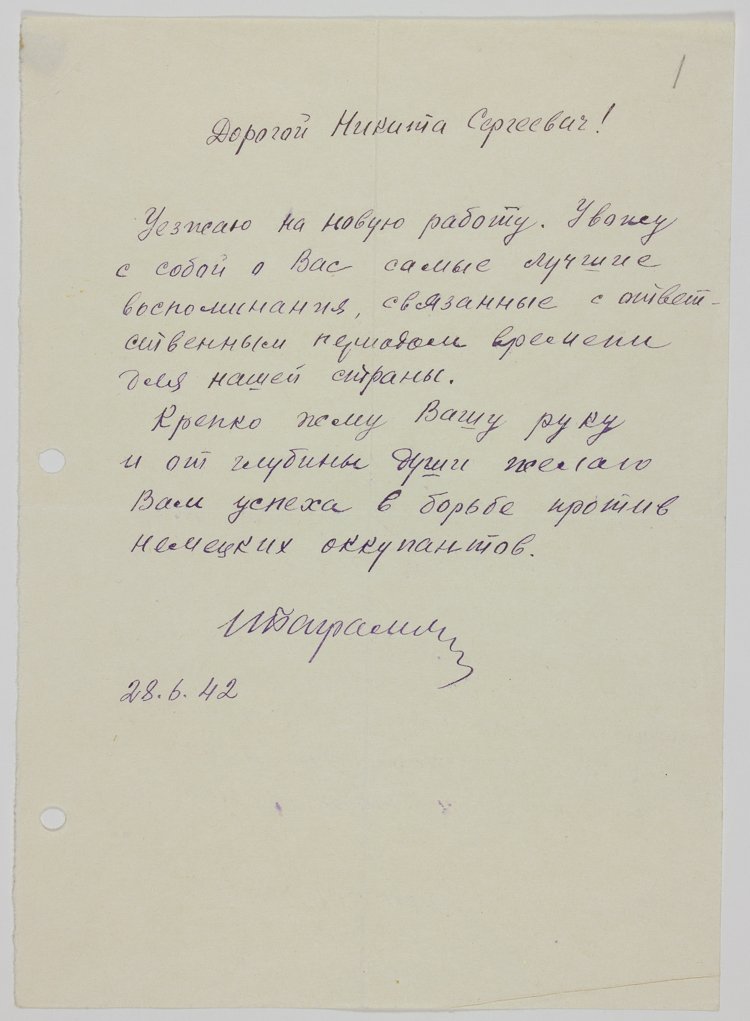 1
Дорогой Никита Сергеевич!
Уезжаю на новую работу. Увожу
с собой о Вас самые лучшие
воспоминания, связанные с ответ-
ственным периодом времени
для нашей страны.
Крепко жму Вашу руку
и от глубины души желаю
Вам успеха в борьбе против
немецких оккупантов.
ИБаграмян
28.6.42